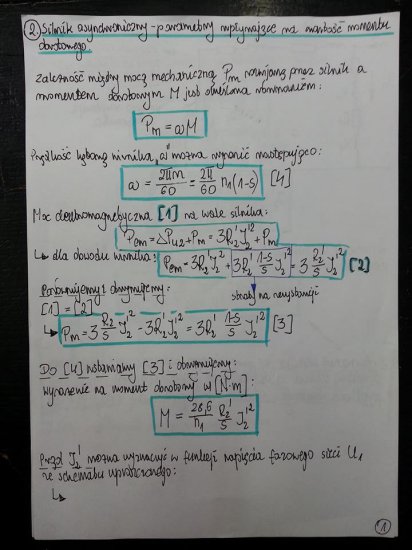 ② Silnik asynchroniczny - parametry wpływające na wartość momentu
obrotowego.
Zależność między mocą mechaniczną Pm rozwijaną przez silnik a
momentem obrotowym M jest określona równaniem:
Pm = ωM
Prędkość kątową wirnika "ω" można wyrazić następująco:
ω = 2πn/60 = 2π/60 n₁(1-s) [4]
Moc elektromagnetyczna [1] na wale silnika:
Pem = ΔPu2 + Pm = 3R₂'I₂'² + Pm
↳ dla obwodu wirnika: Pem = 3R₂'I₂'² + 3R₂' (1-s)/s I₂'² = 3 R₂'/s I₂'² [2]
Porównujemy i otrzymujemy: straty na rezystancji
[1] = [2]
↳ Pm = 3 R₂/s I₂'² - 3R₂'I₂'² = 3R₂' (1-s)/s I₂'² [3]
Do [4] wstawiamy [3] i otrzymujemy:
wyrażenie na moment obrotowy w [N·m]:
M = 28,6/n₁ R₂'/s I₂'²
Prąd I₂' można wyznaczyć w funkcji napięcia fazowego sieci U₁
ze schematu uproszczonego:
↳
①